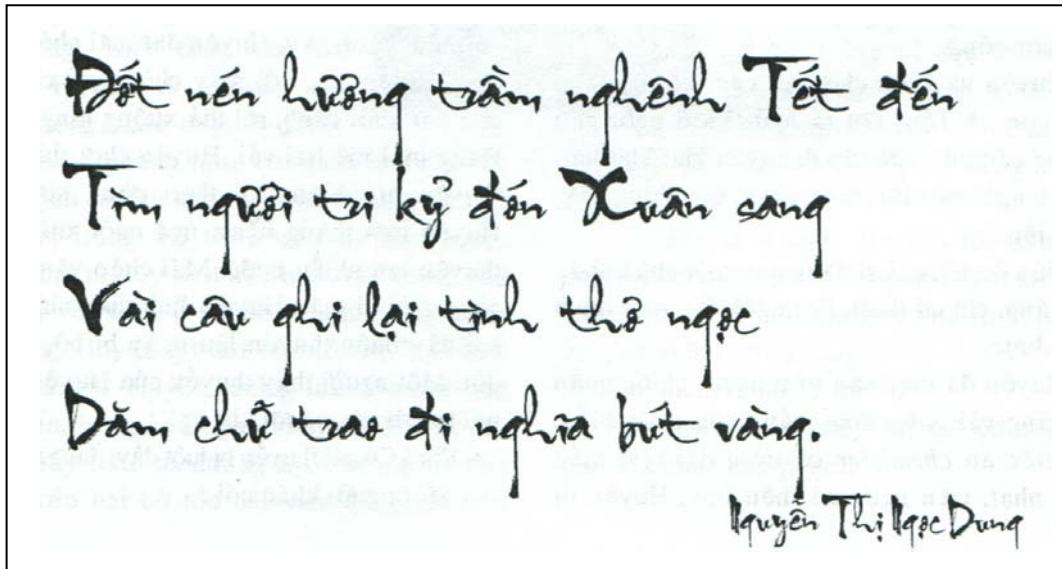 Đốt nến hương trầm nghênh Tết đến
Tìm người tri kỷ đón Xuân sang
Vài câu ghi lại tình thơ ngọc
Dăm chữ trao đi nghĩa bút vàng.
Nguyễn Thị Ngọc Dung